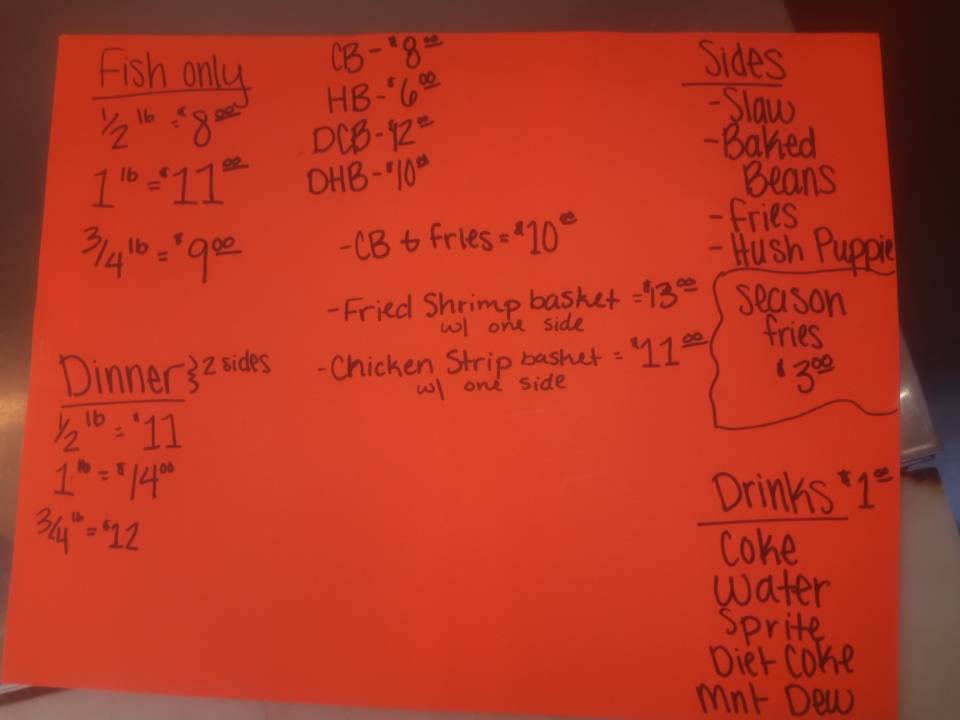 Fish only
1/2 lb = $8.00
1 lb = $11.00
3/4 lb = $9.00
Dinner } 2 sides
1/2 lb = $11
1 lb = $14.00
3/4 lb = $12
CB - $8.00
HB - $6.00
DCB - $12.00
DHB - $10.00
- CB & fries = $10.00
- Fried Shrimp basket = $13.00
w/ one side
- Chicken Strip basket = $11.00
w/ one side
Sides
- Slaw
- Baked
Beans
- Fries
- Hush Puppie
Season
fries
$3.00
Drinks $1.00
Coke
Water
Sprite
Diet Coke
Mnt Dew